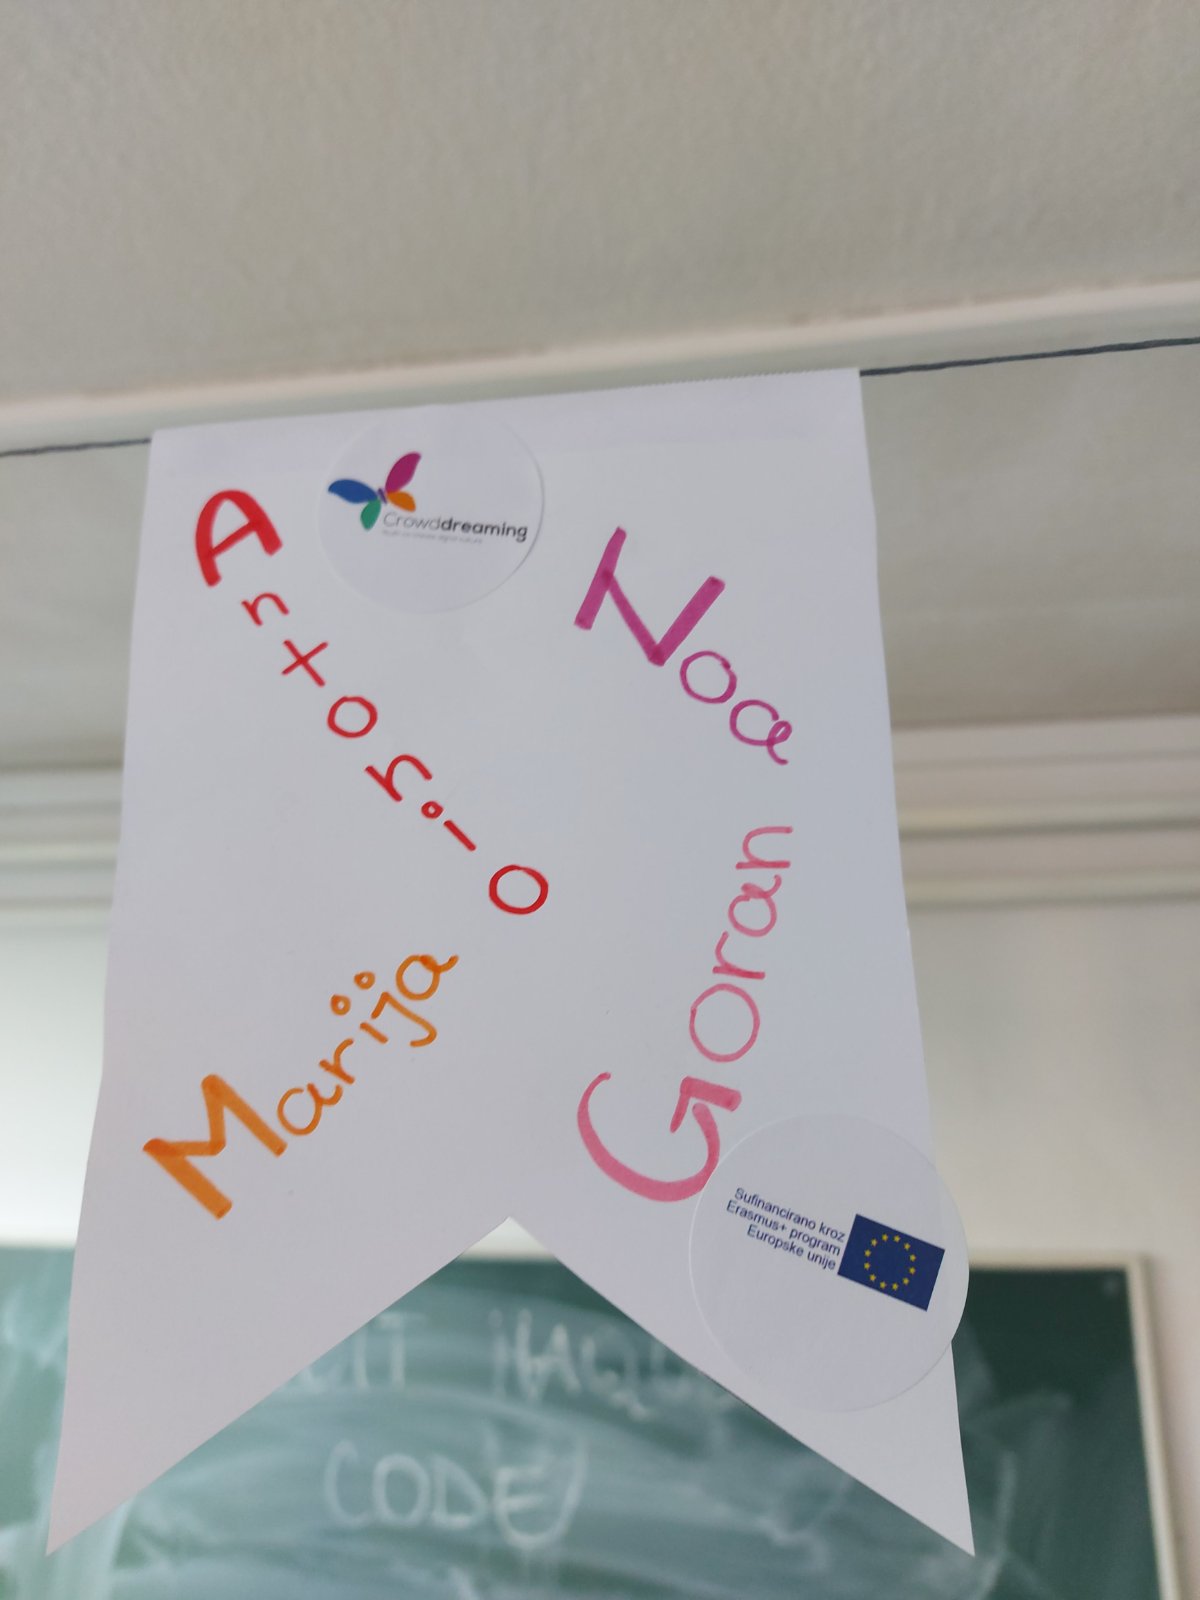 Crowddreaming
Antonio
Noa
Marija
Goran
Sufinancirano kroz
Erasmus+ program
Europske unije
CODE